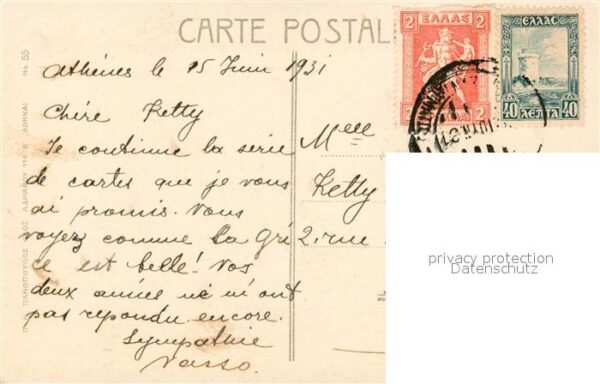 CARTE POSTALE
Athénes le 15 Juin 1931
Chére Ketty
Je continue la serie
de cartes que je vous
ai promis. Vous
voyez comme la Gré
ce est belle! Vos
deux amies ne m'ont
pas repondu encore.
Sympathie
Vasso.
Melle
Ketty
2, rue
ΕΛΛΑΣ
2 2
2 2
ΕΛΛΑΣ
40 ΛΕΠΤΑ 40
No 55
ΑΘΗΝΑΙ
privacy protection
Datenschutz